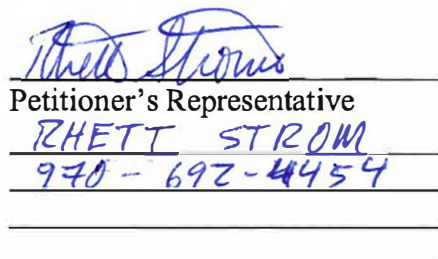 Rhett Strom
Petitioner's Representative
RHETT STROM
970-692-4454